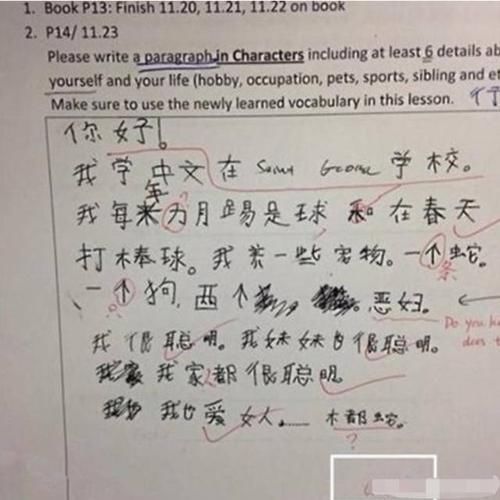 1. Book P13: Finish 11.20, 11.21, 11.22 on book
2. P14/ 11.23
Please write a paragraph in Characters including at least 6 details ab
yourself and your life (hobby, occupation, pets, sports, sibling and et
Make sure to use the newly learned vocabulary in this lesson.
你好!
我学中文在 Saint George 学校。
年
我每来为月踢是球和在春天
打棒球。我养一些宠物。一个蛇。
条
一个狗,两个恶妇。
?
Do you k
does t
我很聪明。我妹妹也很聪明。
我家都很聪明
我也爱女人…… 木都蛇。
?